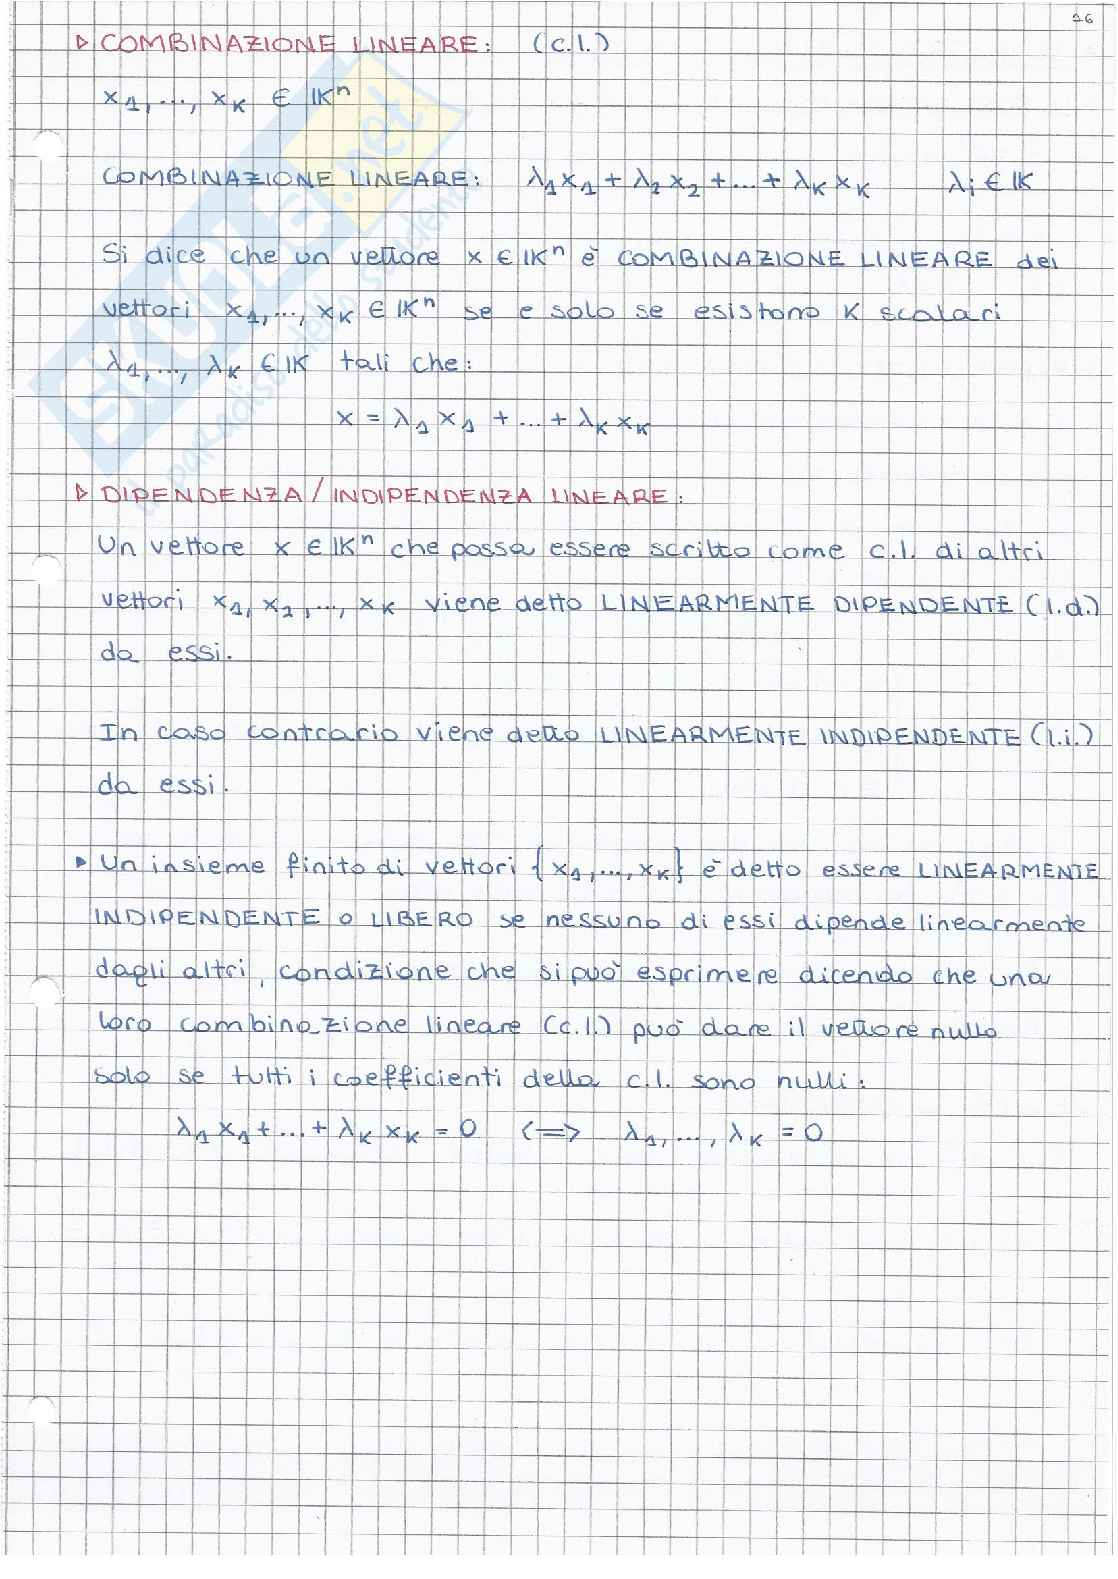 26
▷ COMBINAZIONE LINEARE: (c.l.)
x₁, ..., xₖ ∈ 𝕂ⁿ
COMBINAZIONE LINEARE: λ₁x₁ + λ₂x₂ + ... + λₖxₖ λᵢ ∈ 𝕂
Si dice che un vettore x ∈ 𝕂ⁿ è COMBINAZIONE LINEARE dei
vettori x₁, ..., xₖ ∈ 𝕂ⁿ se e solo se esistono K scalari
λ₁, ..., λₖ ∈ 𝕂 tali che:
x = λ₁x₁ + ... + λₖxₖ
▷ DIPENDENZA / INDIPENDENZA LINEARE:
Un vettore x ∈ 𝕂ⁿ che possa essere scritto come c.l. di altri
vettori x₁, x₂, ..., xₖ viene detto LINEARMENTE DIPENDENTE (l.d.)
da essi.
In caso contrario viene detto LINEARMENTE INDIPENDENTE (l.i.)
da essi.
▸ Un insieme finito di vettori {x₁, ..., xₖ} è detto essere LINEARMENTE
INDIPENDENTE o LIBERO se nessuno di essi dipende linearmente
dagli altri, condizione che si può esprimere dicendo che una
loro combinazione lineare (c.l.) può dare il vettore nullo
solo se tutti i coefficienti della c.l. sono nulli:
λ₁x₁ + ... + λₖxₖ = 0 <=> λ₁, ..., λₖ = 0
SKUOLA.net
il paradiso dello studente